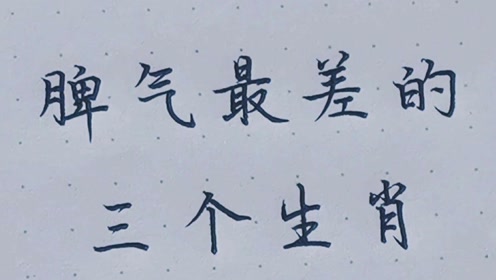 脾气最差的
三个生肖